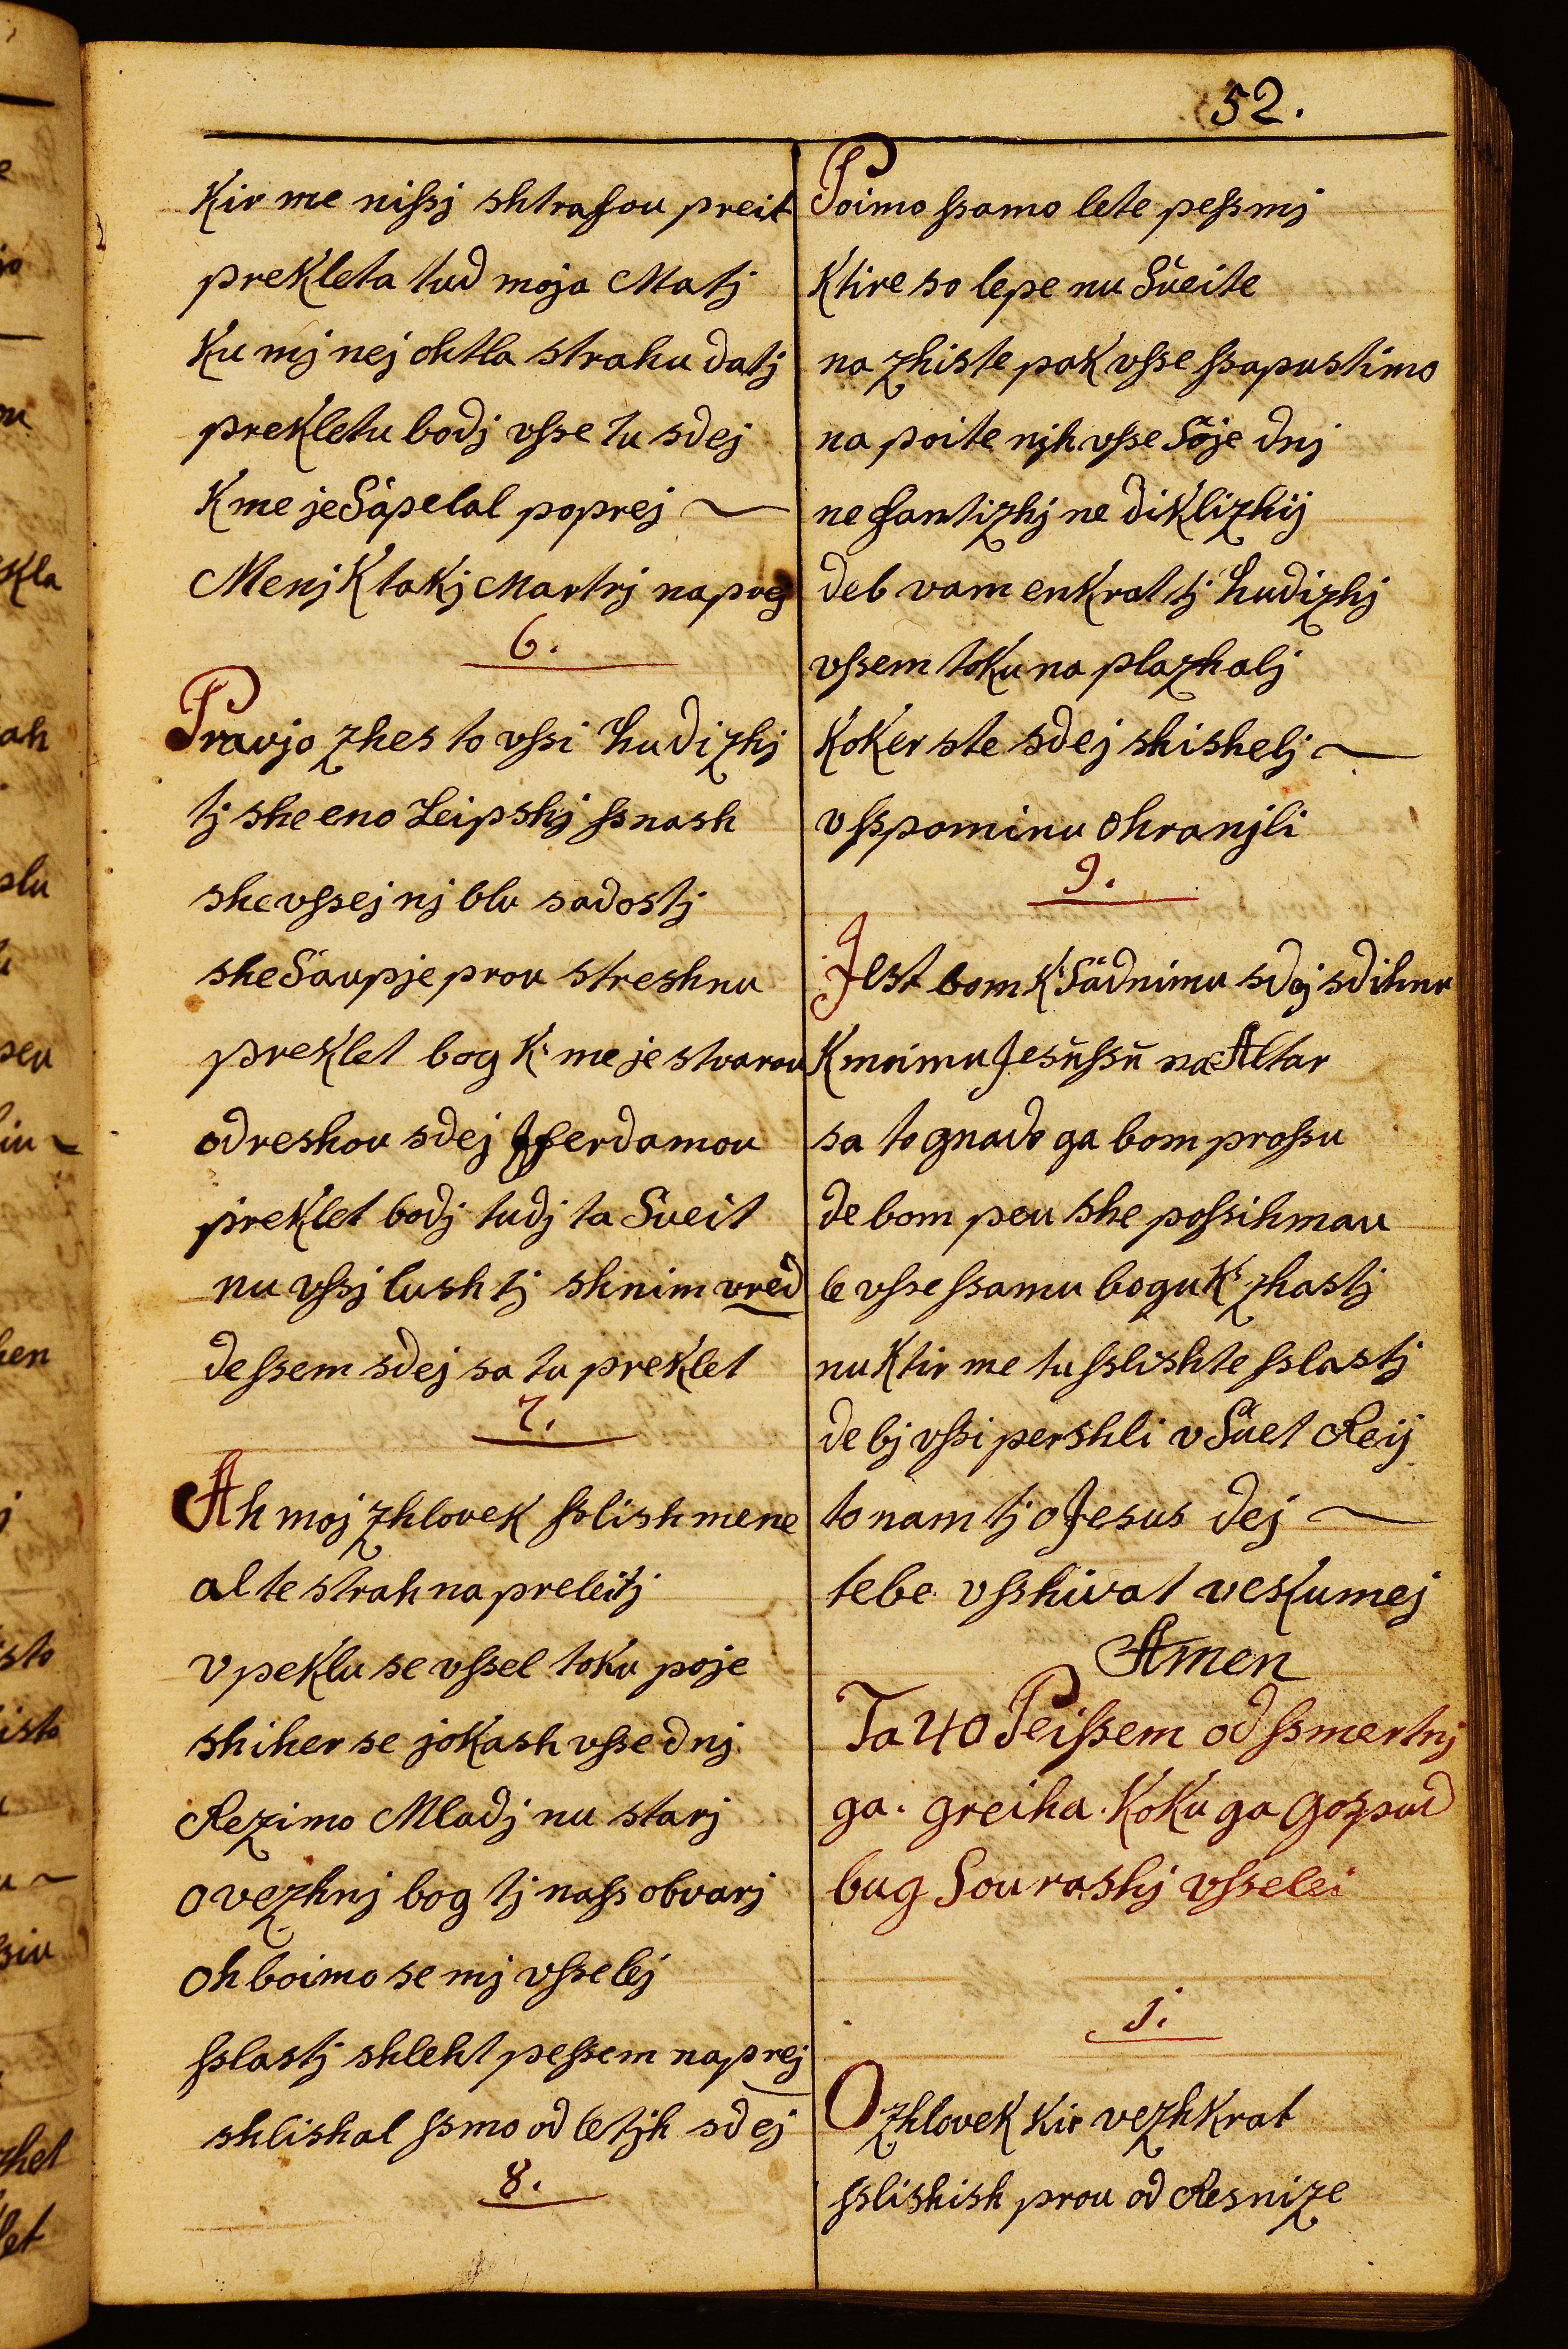 52.
Kir me nissj shtrafou preit
prekleta tud moja Matj
Ku mj nej ohtla strahu datj
prekletu bodj vsse tu sdej
K me je Sapelal poprej ~
Menj K takj Martrj napoej
6.
Pravjo zhes to vssi hudizhj
tj she eno Leipshj ssnash
she vssej nj blu sadostj
she Saupje prou streshnu
preklet bog K: me je stvarou
odreshou sdej Fferdamou
preklet bodj tudj ta Sueit
nu vssj lushtj shnim vred
de ssem sdej sa tu preklet
7.
Ah moj zhlovek sslish mene
al te strah na preleitj
v peklu se vssel toku poje
shiher se jokash vsse dnj
Rezimo Mladj nu starj
O vezhnj bog tj nass obvarj
Oh boimo se mj vsselej
sslastj shleht pessem naprej
shlishal ssmo od letjh sdej
8.
Poimo ssamo lete pessmj
Ktire so lepe nu Sueite
na zhiste pak vsse ssapustimo
na poite njh vsse Soje dnj
ne fantizhj ne diklizhij
deb vam enkrat tj hudizhj
vssem toku na plazhalj
Koker ste sdej shishelj ~
v sspominu ohranjli
9.
Jest bom K: Sadnimu sdej sdihnu
K moimu Jesussu na Altar
sa to gnado ga bom prossu
de bom peu she possihmau
le vsse ssamu bogu K: zhastj
nu Ktir me tu sslishte sslastj
de bj vssi pershli v Suet Reij
to nam tj o Jesus dej ~
tebe vsshivat veskumej
Amen
Ta 40 Peissem od ssmertnj
ga. greiha. Koku ga gospud
bug Sourashj vsselei
1.
O zhlovek Kir vezhkrat
sslishish prou od Resnize